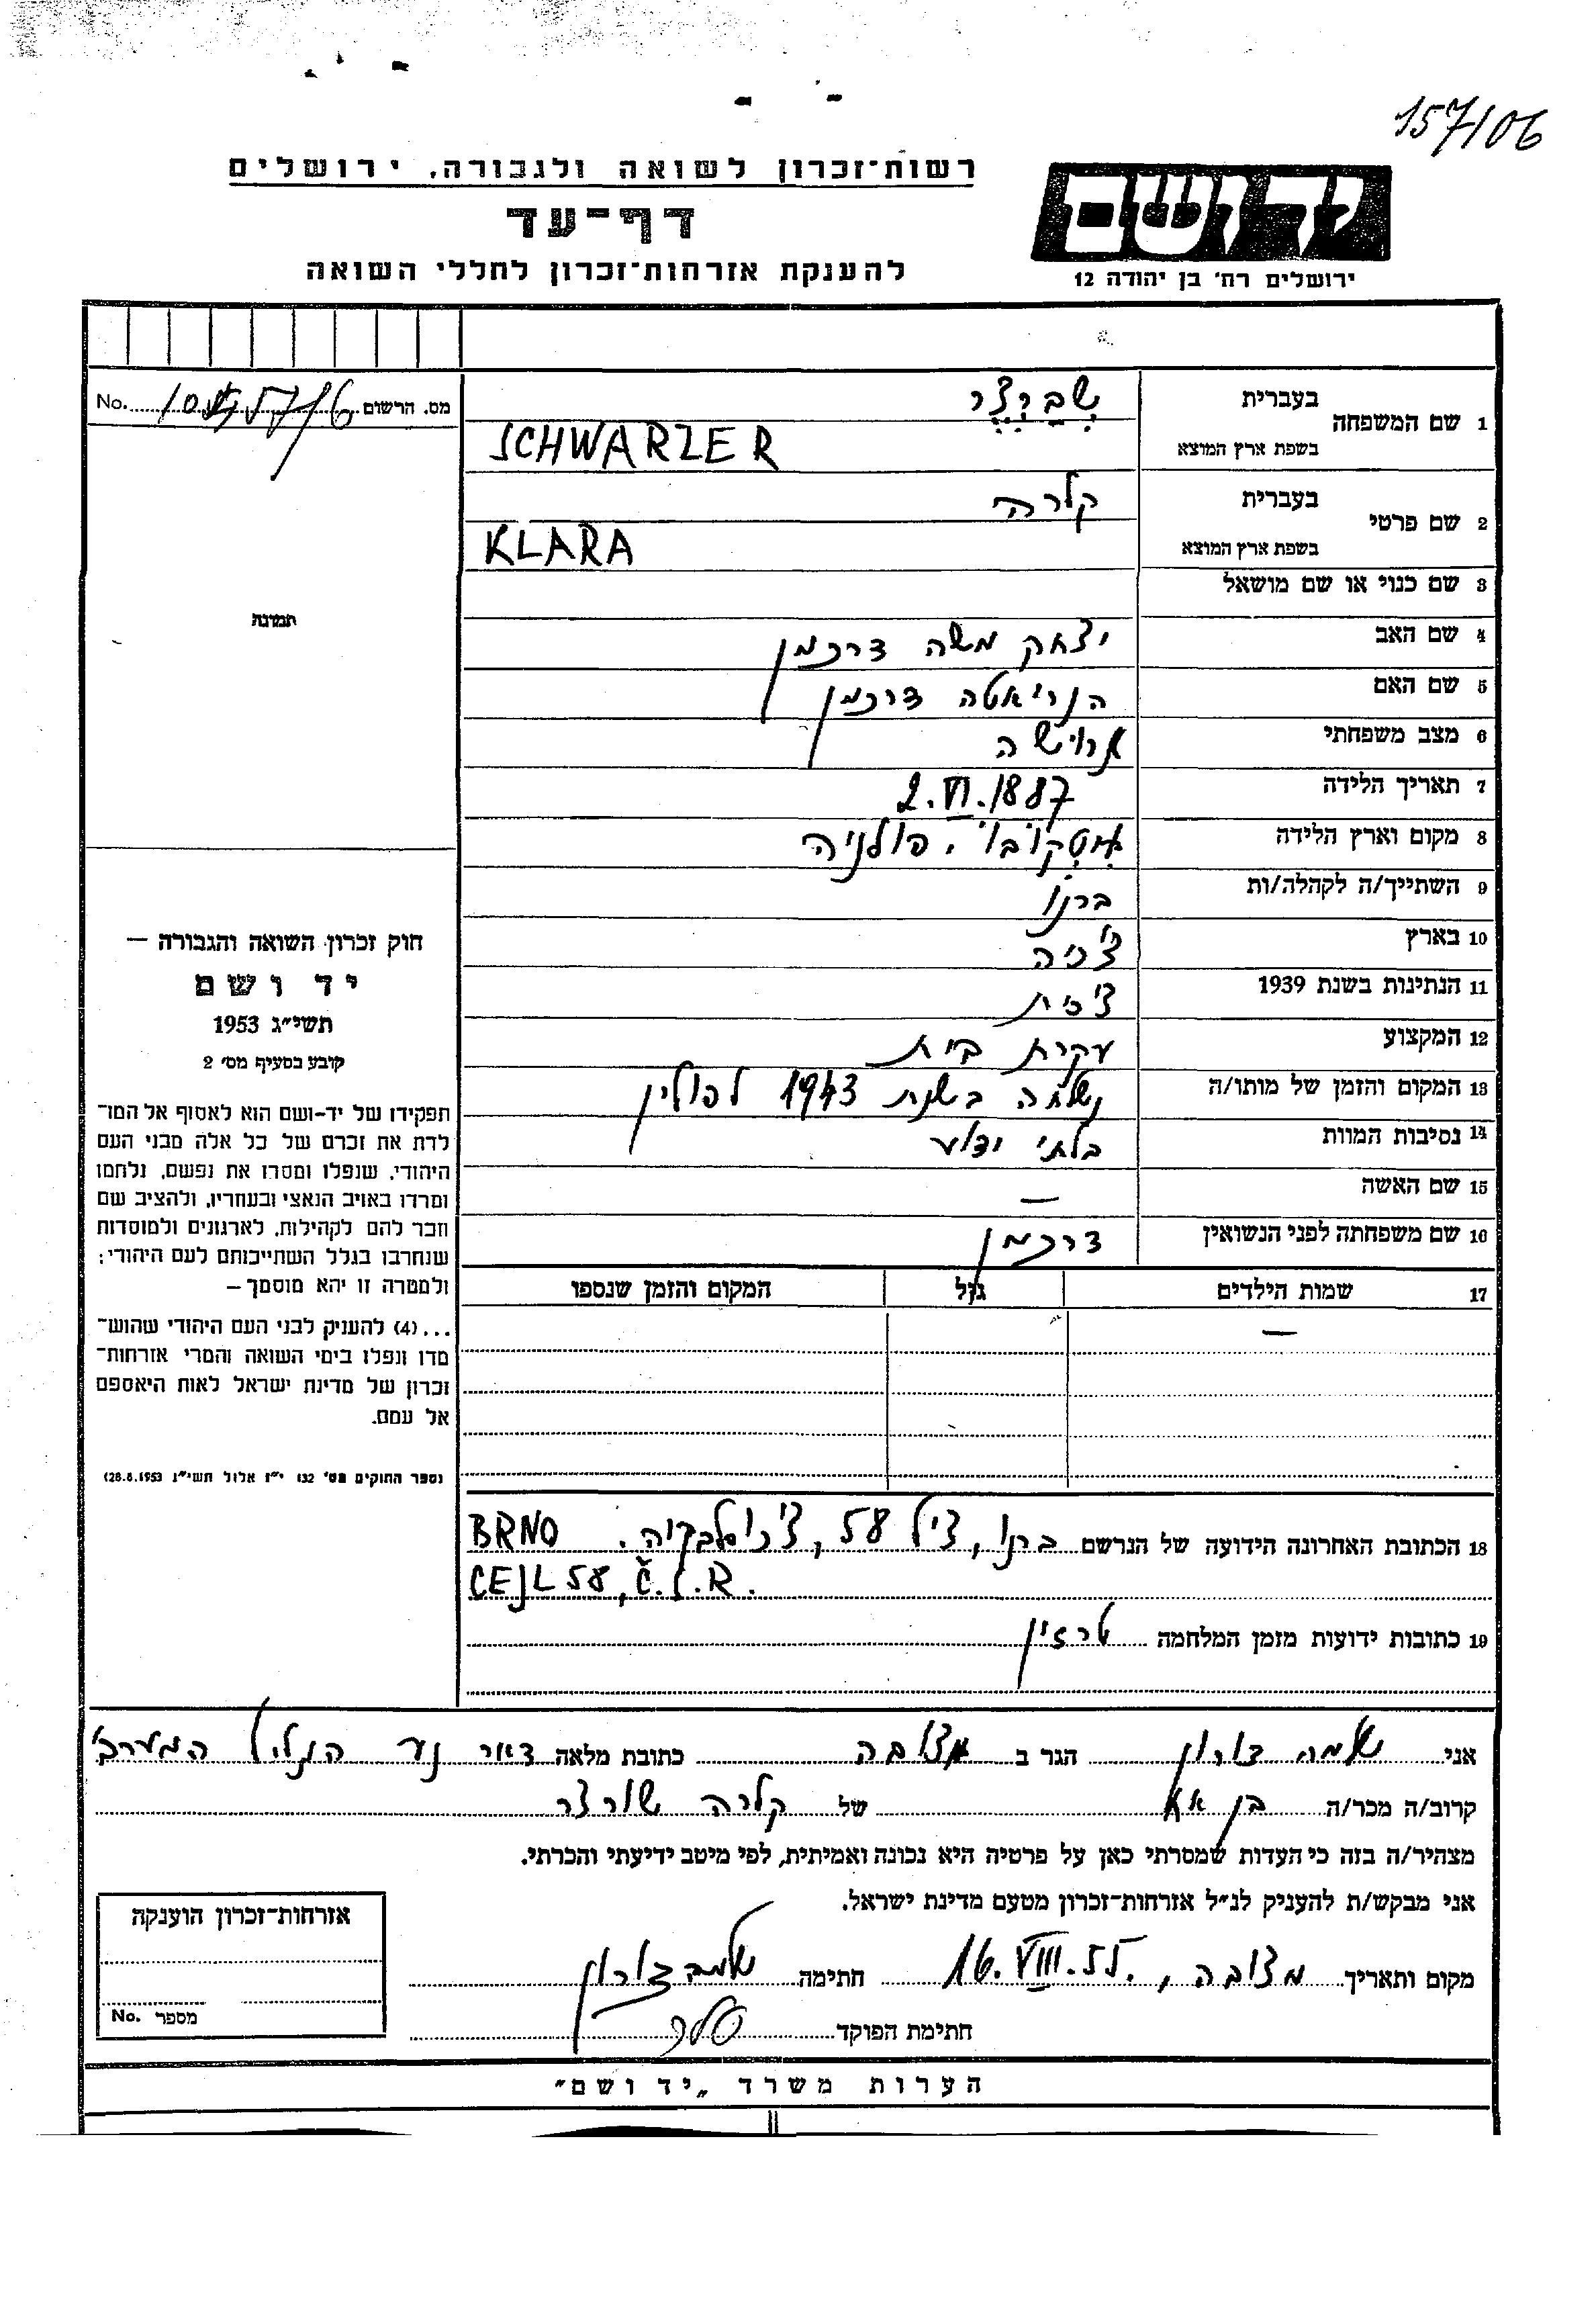 157/06
רשות־זכרון לשואה ולגבורה, ירושלים
דף־עד
להענקת אזרחות־זכרון לחללי השואה
יד ושם
ירושלים רח' בן יהודה 12
מס. הרשום No.
1 שם המשפחה בעברית שברצר
בשפת ארץ המוצא SCHWARZER
2 שם פרטי בעברית קלרה
בשפת ארץ המוצא KLARA
3 שם כנוי או שם מושאל
4 שם האב יצחק משה דרכמן
5 שם האם הנריאטה דרכמן
6 מצב משפחתי
7 תאריך הלידה 2.VI.1887
8 מקום וארץ הלידה פולניה
9 השתייך/ה לקהלה/ות ברנו
10 בארץ צ'כיה
11 הנתינות בשנת 1939 צ'כית
12 המקצוע עקרת בית
13 המקום והזמן של מותו/ה נשלחה בשנת 1943 לפולין
14 נסיבות המוות בלתי ידוע
15 שם האשה —
16 שם משפחתה לפני הנשואין דרכמן
17 שמות הילדים גיל המקום והזמן שנספו
—
תמונה
חוק זכרון השואה והגבורה —
יד ושם
תשי״ג 1953
קובע בסעיף מס' 2
תפקידו של יד-ושם הוא לאסוף אל המו־
לדת את זכרם של כל אלה מבני העם
היהודי, שנפלו ומסרו את נפשם, נלחמו
ומרדו באויב הנאצי ובעוזריו, ולהציב שם
וזכר להם לקהילות, לארגונים ולמוסדות
שנחרבו בגלל השתייכותם לעם היהודי;
ולמטרה זו יהא מוסמך —
...(4) להעניק לבני העם היהודי שהוש־
מדו ונפלו בימי השואה והמרי אזרחות־
זכרון של מדינת ישראל לאות היאספם
אל עמם.
(ספר החוקים מס' 132 י״ז אלול תשי״ג 28.8.1953)
18 הכתובת האחרונה הידועה של הנרשם ברנו, צייל 58, צ'כוסלבקיה. BRNO
CEJL 58, Č.S.R.
19 כתובות ידועות מזמן המלחמה טרזין
אני שלמה דורון הגר ב מצובה כתובת מלאה דאר נע הגליל המערבי
קרוב/ה מכר/ה בן אח של קלרה שורצר
מצהיר/ה בזה כי העדות שמסרתי כאן על פרטיה היא נכונה ואמיתית, לפי מיטב ידיעתי והכרתי.
אני מבקש/ת להעניק לנ״ל אזרחות־זכרון מטעם מדינת ישראל.
מקום ותאריך מצובה, 16.VIII.55. חתימה שלמה דורון
חתימת הפוקד
אזרחות־זכרון הוענקה
מספר No.
הערות משרד „יד ושם״